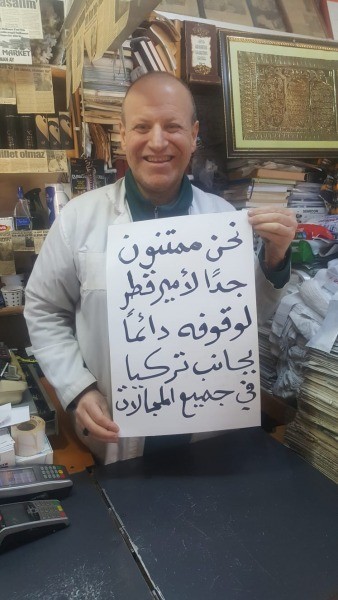 MARKET
illet olmaz
نحن ممتنون
جدًا لأمير قطر
لوقوفه دائمًا
بجانب تركيا
في جميع المجالات